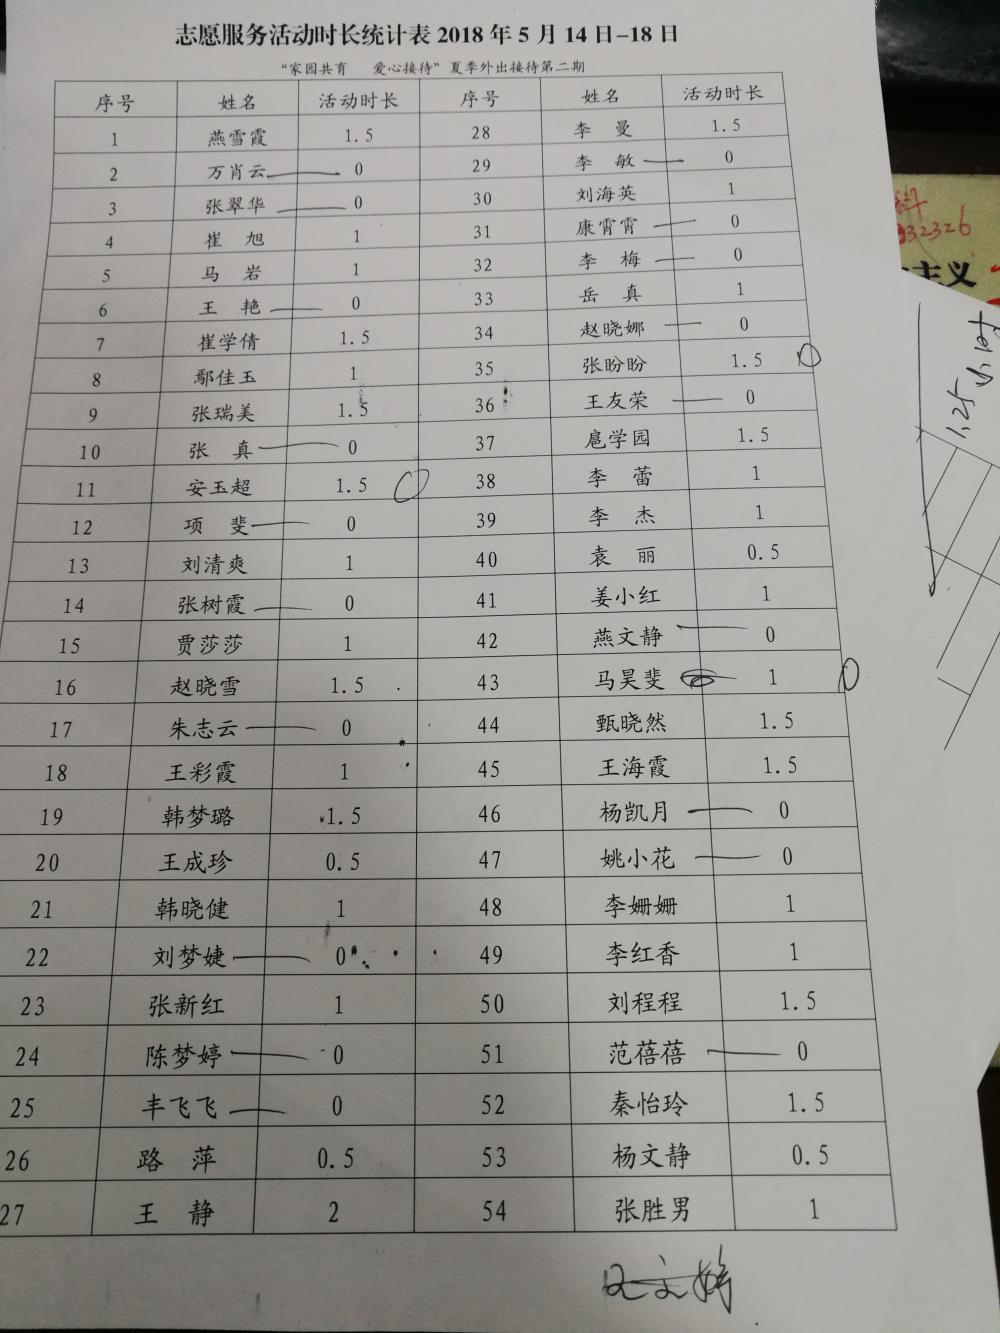 志愿服务活动时长统计表 2018 年 5 月 14 日-18 日
“家园共育 爱心接待”夏季外出接待第二期
序号 姓名 活动时长 序号 姓名 活动时长
1 燕雪霞 1.5 28 李 曼 1.5
2 万肖云 0 29 李 敏 0
3 张翠华 0 30 刘海英 1
4 崔 旭 1 31 康霄霄 0
5 马 岩 1 32 李 梅 0
6 王 艳 0 33 岳 真 1
7 崔学倩 1.5 34 赵晓娜 0
8 鄢佳玉 1 35 张盼盼 1.5
9 张瑞美 1.5 36 王友荣 0
10 张 真 0 37 扈学园 1.5
11 安玉超 1.5 38 李 蕾 1
12 项 斐 0 39 李 杰 1
13 刘清爽 1 40 袁 丽 0.5
14 张树霞 0 41 姜小红 1
15 贾莎莎 1 42 燕文静 0
16 赵晓雪 1.5 43 马昊斐 1
17 朱志云 0 44 甄晓然 1.5
18 王彩霞 1 45 王海霞 1.5
19 韩梦璐 1.5 46 杨凯月 0
20 王成珍 0.5 47 姚小花 0
21 韩晓健 1 48 李姗姗 1
22 刘梦婕 0 49 李红香 1
23 张新红 1 50 刘程程 1.5
24 陈梦婷 0 51 范蓓蓓 0
25 丰飞飞 0 52 秦怡玲 1.5
26 路 萍 0.5 53 杨文静 0.5
27 王 静 2 54 张胜男 1
科
932326
主义
1.25